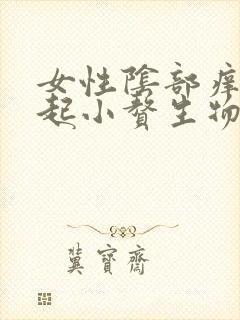 女性陰部痒
起小贅生物
冀寶齋